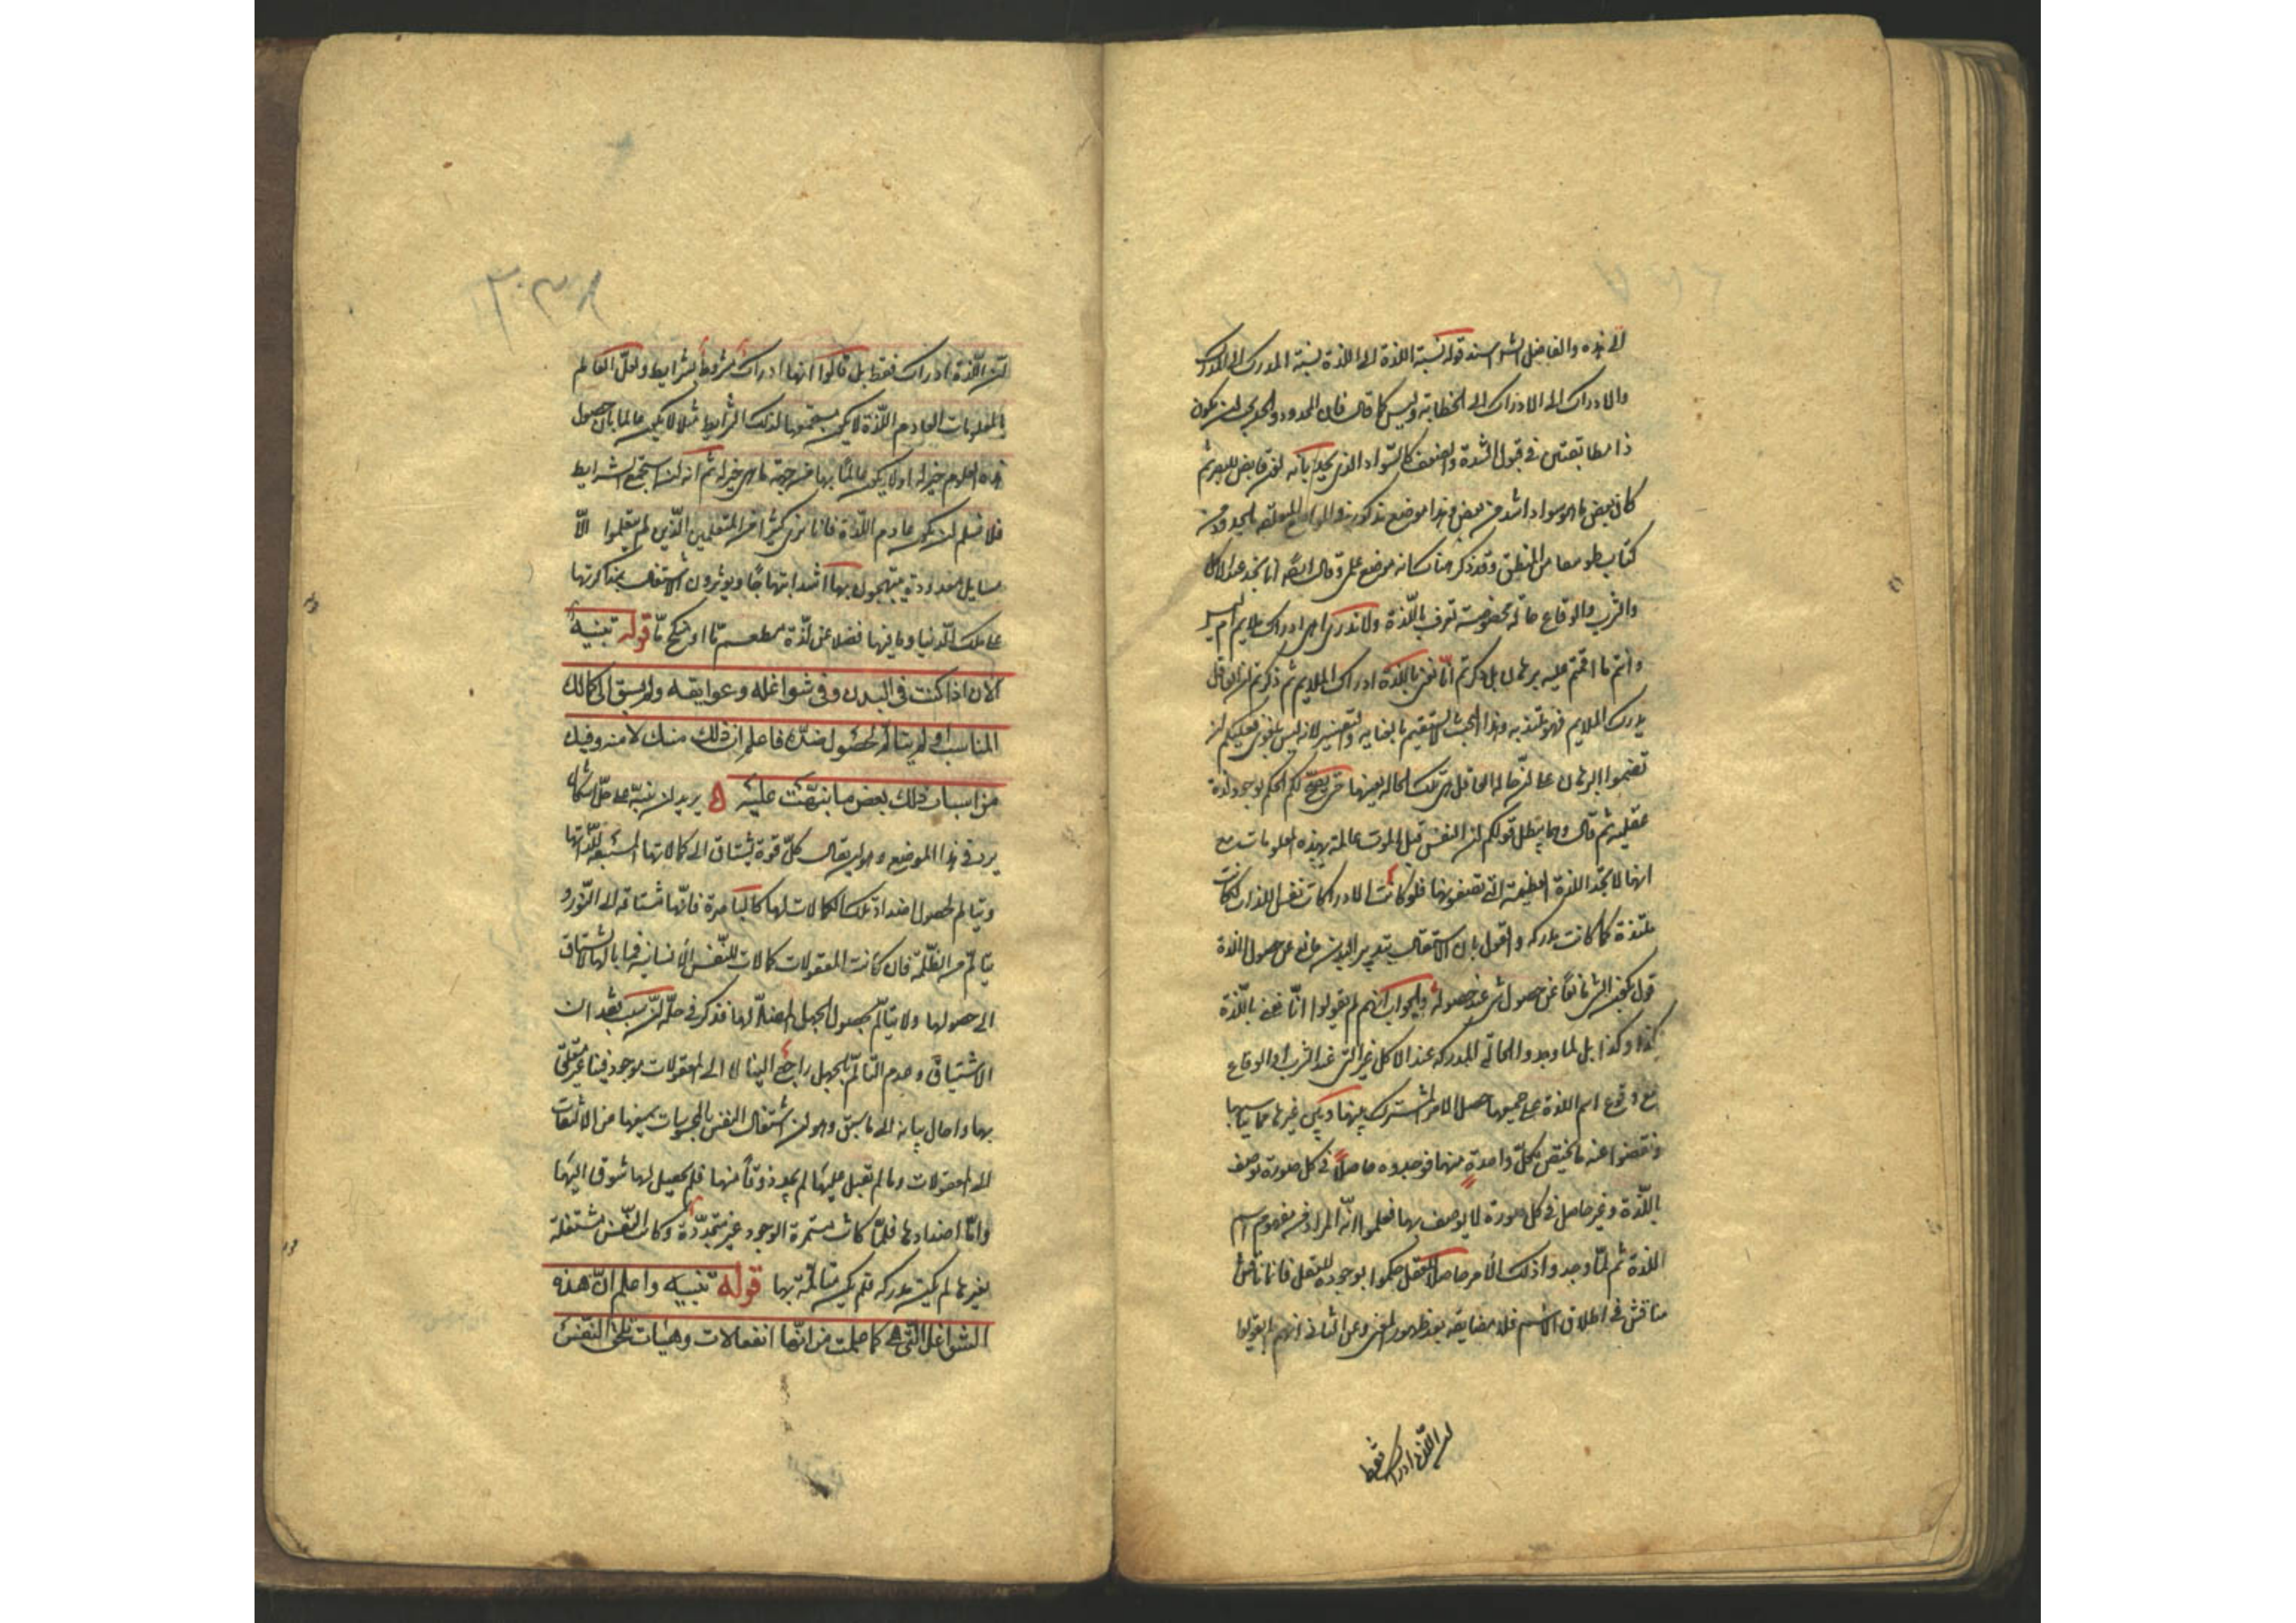 لذيذه والفاضل الشارح اسند قوله نسبة اللذة الى اللذة نسبة المدرك الى المدرك
والادراك الى الادراك الى الخطابة وليس كما قال فان المحدود والحد يجب ان يكون
ذا مطابقتين في قبول الشدة والضعف كالسواد الذي يحد بانه لون قابض للبصر ثم
كان بعض ما هو سواد اشد من بعض وهذا موضع مذكور في المواضع المتعلقة بالحدود من
كتاب طوبيقا من المنطق وقد ذكر هناك انه موضع علمي وقال ايضا انا نجد عند الاكل
والشرب والوقاع حالة مخصوصة تعرف باللذة ولا ندري اهي ادراك ملايم ام لا
وانتم ما اقمتم عليه برهان بل ذكرتم انا نعني باللذة ادراك الملايم ثم ذكرتم ان العاقل
يدرك الملايم فهو ملتذ به وهذا البحث لا يستقيم بالعناية والتفسير لانه ليس بلغوي فعليكم ان
تقيموا البرهان على ان حالة العاقل هي تلك الحالة بعينها حتى يصح لكم الحكم بوجود لذة
عقلية ثم قال ومما يبطل قولكم ان النفس قبل الموت عالمة بهذه المعلومات مع
انها لا تجد اللذة العظيمة التي تصفونها فلو كانت الادراكات نفس اللذات لكانت
ملتذة كما كانت مدركة والقول بان الاشتغال بتدبير البدن مانع عن حصول اللذة
قول بكون الشئ مانعا عن حصول شئ عند حصوله والجواب انهم لم يقولوا انا نعني باللذة
كذا وكذا بل لما وجدوا الحالة المدركة عند الاكل غير التي عند الشرب او الوقاع
مع وقوع اسم اللذة على جميعها حصل الامر المشترك بينها وبين غيرها مما يناسبها
ونفضوا عنه ما يختص بكل واحدة منها فوجدوه حاصلا في كل صورة توصف
باللذة وغير حاصل في كل صورة لا يوصف بها فعلموا انه المراد من مفهوم اسم
اللذة ثم لما وجدوا ذلك الامر حاصلا للعقل حكموا بوجوده للعقل فان ناقش
مناقش في اطلاق الاسم فلا مضايقة بعد ظهور المعنى وعن الثاني انهم لم يقولوا
ان اللذة ادراك فقط
ان اللذة ادراك فقط بل قالوا انها ادراك مشروط بشرايط ولعل العالم
بالمعلومات العادم اللذة لا يكون مستجمعا لتلك الشرايط مثلا لا يكون عالما بان حصول
هذه العلوم خير له او لا يكون عالما بها من جهة ما هي خير له ثم انه ان استجمع الشرايط
فلا نسلم ان يكون عادم اللذة فانا نرى كثيرا من المتعلمين الذين لم يتعلموا الا
مسايل معدودة يبتهجون بها اشد ابتهاجا ويوثرون الاشتغال بمذاكرتها
على ملك الدنيا وما فيها فضلا عن لذة مطعم ما او منكح ما قوله تنبيه
الان اذا كنت في البدن وفي شواغله وعوايقه ولم يسبق الى كمالك
المناسب او لم يتألم لحصول ضده فاعلم ان ذلك منك لا منه وفيك
من اسباب ذلك بعض ما نبهت عليه ه يريد ان ينبه على حل اشكال
يرد في هذا الموضع وهو ان يقال كل قوة تشتاق الى كمالاتها المستتبعة للذاتها
ويتالم لحصول اضداد تلك الكمالات لها كالباصرة فانها مشتاقة الى النور و
يتالم من الظلمة فان كانت المعقولات كمالات للنفس الانسانية فما بالها لا تشتاق
الى حصولها ولا يتألم بحصول الجهل المضاد لها فذكر في حله ان سبب فقدان
الاشتياق وعدم التالم بالجهل راجع الينا لا الى المعقولات موجود فينا غير متعلق
بها واحال بيانه الى ما سبق وهو ان اشتغال النفس بالمحسوسات يمنعها من الالتفات
الى المعقولات وما لم تقبل عليها لم يجد ذوقا منها فلم يحصل لها شوق اليها
واما اضدادها فلما كانت مستمرة الوجود غير متجددة وكانت النفس مشتغلة
بغيرها لم يكن مدركة فلم يكن متالمة بها قوله تنبيه واعلم ان هذه
الشواغل التي هي كما علمت من انها انفعالات وهيئات تلحق النفس